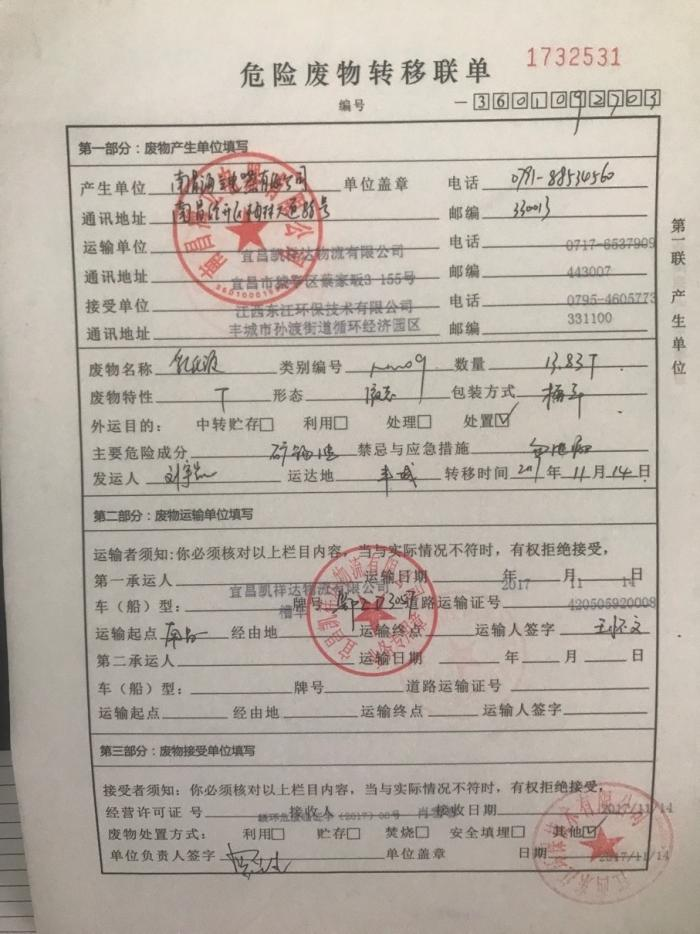 1732531
危险废物转移联单
编号 —3601092703
第一部分：废物产生单位填写
产生单位 单位盖章 电话 0791-88534560
通讯地址 邮编 330013
运输单位 宜昌凯祥达物流有限公司 电话 0717-6537909
通讯地址 邮编 443007
接受单位 江西东江环保技术有限公司 电话 0795-4605773
通讯地址 丰城市孙渡街道循环经济园区 邮编 331100
废物名称 乳化液 类别编号 数量 13.83T
废物特性 T 形态 液态 包装方式 桶装
外运目的： 中转贮存□ 利用□ 处理□ 处置☑
主要危险成分 矿物油 禁忌与应急措施
发运人 运达地 丰城 转移时间 2017年11月14日
第二部分：废物运输单位填写
运输者须知:你必须核对以上栏目内容，当与实际情况不符时，有权拒绝接受，
第一承运人 宜昌凯祥达物流有限公司 运输日期 2017年11月14日
车（船）型： 槽车 牌号 道路运输证号 420505920009
运输起点 南昌 经由地 运输终点 运输人签字
第二承运人 运输日期 年 月 日
车（船）型： 牌号 道路运输证号
运输起点 经由地 运输终点 运输人签字
第三部分：废物接受单位填写
接受者须知：你必须核对以上栏目内容，当与实际情况不符时，有权拒绝接受，
经营许可证 号 接收人 接收日期 2017/11/14
废物处置方式： 利用□ 贮存□ 焚烧□ 安全填埋□ 其他☑
单位负责人签字 单位盖章 日期 2017/11/14
第一联 产生单位